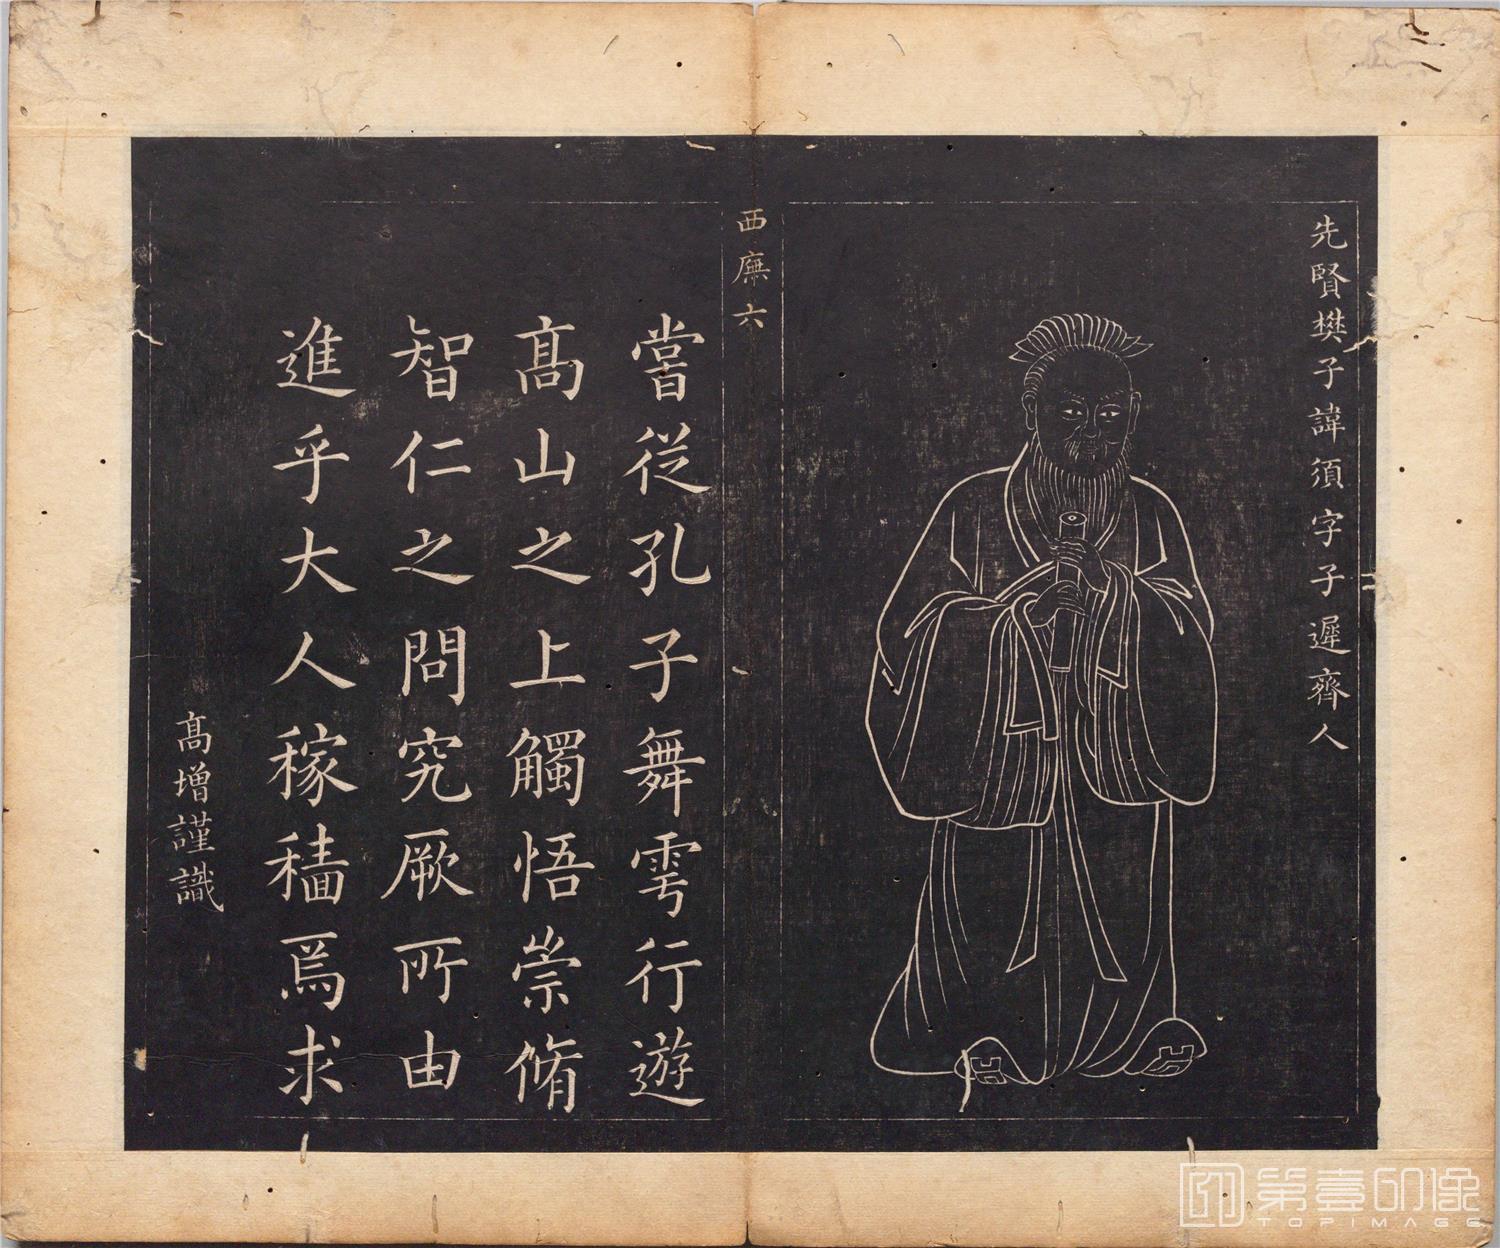 先賢樊子諱須字子遲齊人
西廡六
嘗從孔子舞雩行遊
高山之上觸悟崇脩
智仁之問究厥所由
進乎大人稼穡焉求
高增謹識
第壹印像
TOPIMAGE